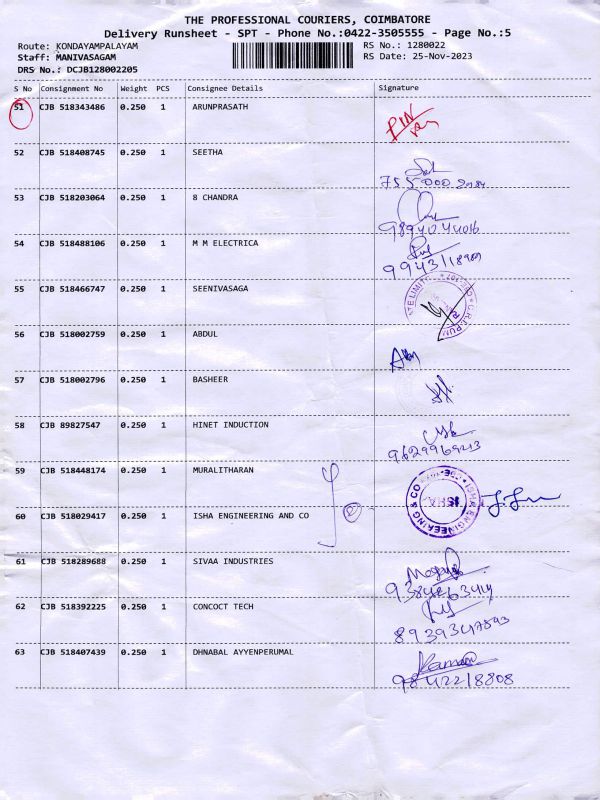 THE PROFESSIONAL COURIERS, COIMBATORE
Delivery Runsheet - SPT - Phone No.:0422-3505555 - Page No.:5
Route: KONDAYAMPALAYAM
RS No.: 1280022
Staff: MANIVASAGAM
RS Date: 25-Nov-2023
DRS No.: DCJB128002205
S No Consignment No Weight PCS Consignee Details Signature
51 CJB 518343486 0.250 1 ARUNPRASATH
52 CJB 518408745 0.250 1 SEETHA
53 CJB 518203064 0.250 1 8 CHANDRA
9894044016
54 CJB 518488106 0.250 1 M M ELECTRICA
55 CJB 518466747 0.250 1 SEENIVASAGA
56 CJB 518002759 0.250 1 ABDUL
57 CJB 518002796 0.250 1 BASHEER
58 CJB 89827547 0.250 1 HINET INDUCTION
9629969213
59 CJB 518448174 0.250 1 MURALITHARAN
ISHA ENGINEERING & CO
ISHA
60 CJB 518029417 0.250 1 ISHA ENGINEERING AND CO
61 CJB 518289688 0.250 1 SIVAA INDUSTRIES
62 CJB 518392225 0.250 1 CONCOCT TECH
8939347893
63 CJB 518407439 0.250 1 DHNABAL AYYENPERUMAL
9842218808